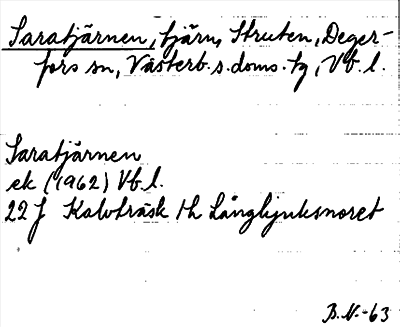 Saratjärnen, tjärn, Struten, Deger-
fors sn, Västerb. s. doms. tg, Vb. l.
Saratjärnen
ek (1962) Vb. l.
22 J Kalvträsk 1 h Långbjuksmoret
B.N.-63